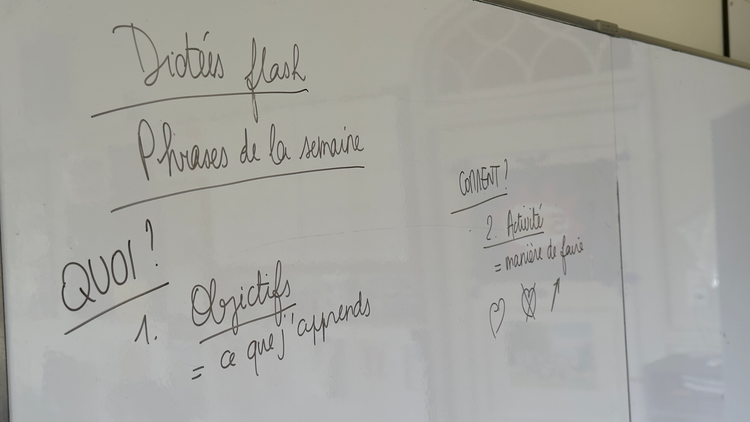 Dictées flash
Phrases de la semaine
QUOI ?
1. Objectifs
= ce que j'apprends
COMMENT ?
2. Activité
= manière de faire